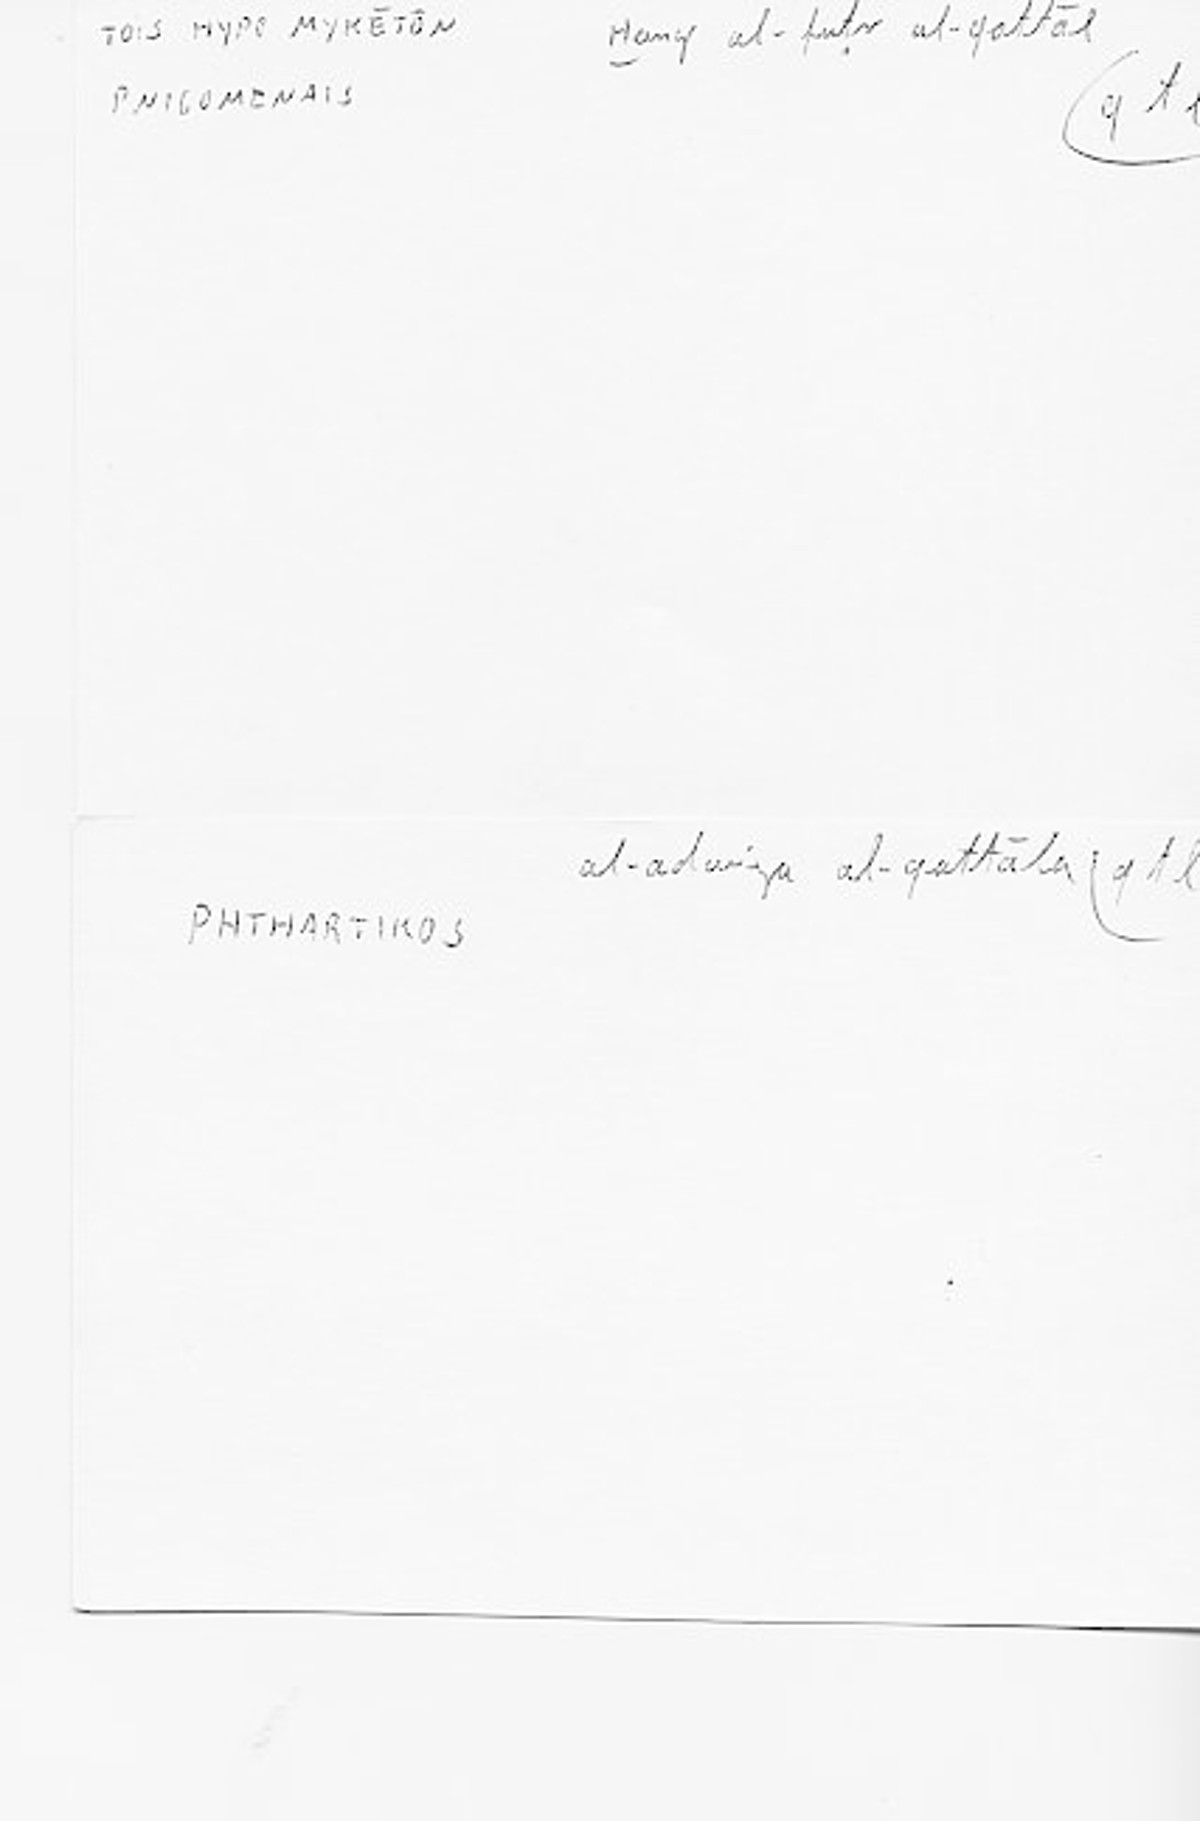 TOIS HYPO MYKĒTŌN
PNIGOMENAIS
Ḫanq al-fuṭr al-qattāl
(q t l
al-adwiya al-qattāla (q t l
PHTHARTIKOS